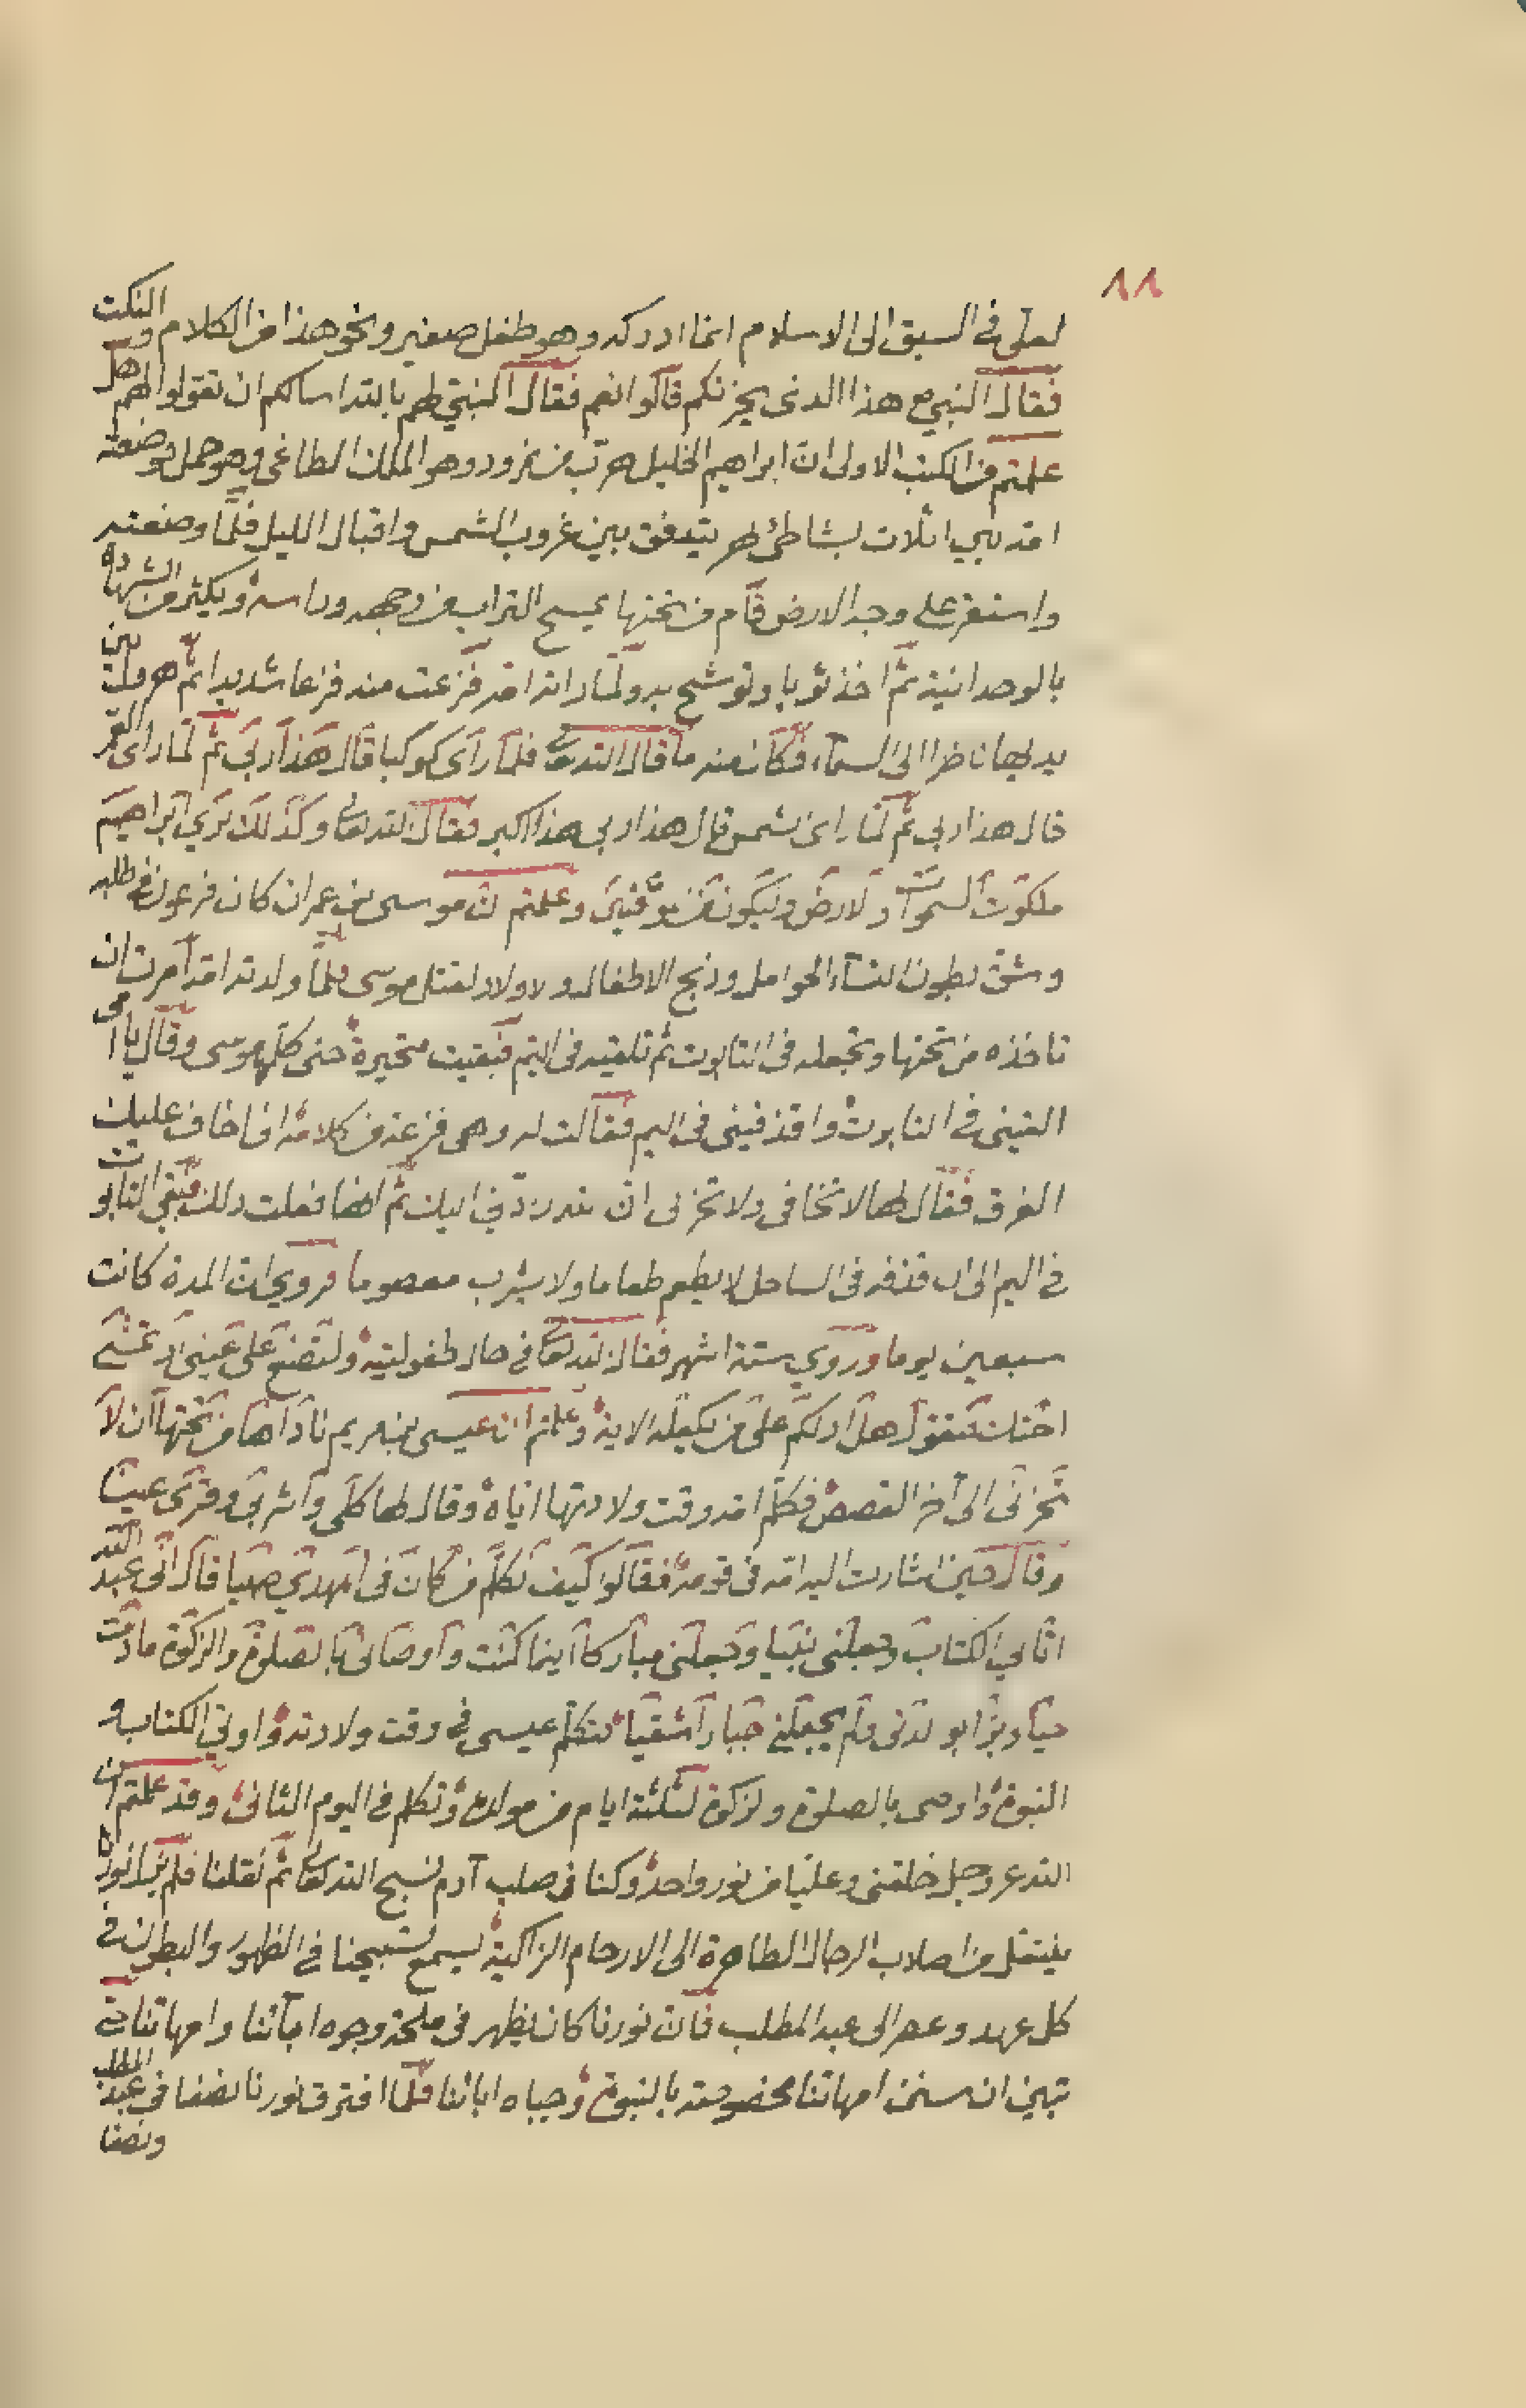 ٨٨
لعلي في السبق الى الاسلام انما ادركه وهو طفل صغير ونحو هذا من الكلام والنكت
فقال النبي ص هذا الذى يحزنكم قالوا نعم فقال النبي لهم بالله اسالكم ان تقولوا لهم هل
علمتم من الكتب الاولى ان ابراهيم الخليل هرب من نمرود وهو الملك الطاغي وهو حمل ووضعته
امه بين اثلاث بشاطئ نهر يتدفق بين غروب الشمس واقبال الليل فلما وضعته
واستقر على وجه الارض قام من تحتها يمسح التراب من وجهه وراسه ويكثر من الشهادة
بالوحدانية ثم اخذ ثوبا وتوشح به ولما راته امه فزعت منه فزعا شديدا ثم هرول بين
يديها ناظرا الى السماء فكان منه ما قال الله تعالى فلما رآى كوكبا قال هذا ربي ثم لما راى القمر
قال هذا ربي ثم لما راى الشمس قال هذا ربي هذا اكبر فقال الله تعالى وكذلك نري ابراهيم
ملكوت السموات والارض وليكون من الموقنين وعلمتم ان موسى بن عمران كان فرعون في طلبه
وشق بطون النساء الحوامل وذبح الاطفال والاولاد لقتل موسى فلما ولدته امه امرت ان
تاخذه من تحتها وتجعله فى التابوت ثم تلقيه فى اليم فبقيت متحيرة حتى كلمها موسى وقال يا امى
القينى في التابوت واقذفينى فى اليم فقالت له وهى فزعة من كلامه انى اخاف عليك
الغرق فقال لها لا تخافى ولا تحزنى ان الله رادني اليك ثم انها فعلت ذلك فبقي التابوت
في اليم الى ان قذفه فى الساحل لا يطعم طعاما ولا يشرب معصوما فروي ان المدة كانت
سبعين يوما وروي ستة اشهر فقال الله تعالى في حال طفوليته ولتصنع على عينى اذ تمشي
اختك فتقول هل ادلكم على من يكفله الاية وعلمتم ان عيسى بن مريم ناداها من تحتها ان لا
تحزنى الى آخر القصص فكلم امه وقت ولادتها اياه وقال لها كلى واشربى وقرى عينا
وقال حين اشارت اليه امه فى قومه فقالوا كيف نكلم من كان فى المهد صبيا قال انى عبد الله
اتاني الكتاب وجعلنى نبيا وجعلنى مباركا اينما كنت واوصانى بالصلوة والزكوة ما دمت
حيا وبرا بوالدتى ولم يجعلني جبارا شقيا فتكلم عيسى في وقت ولادته واوتي الكتاب و
النبوة واوصى بالصلوة والزكوة لثلثة ايام من مولده وتكلم في اليوم الثانى وقد علمتم ان
الله عز وجل خلقنى وعليا من نور واحد وكنا فى صلب آدم نسبح الله تعالى ثم نقلنا فلم يزل نورنا
ينتقل من اصلاب الرجال الطاهرة الى الارحام الزاكية يسمع تسبيحنا في الظهور والبطون في
كل عهد وعصر الى عبد المطلب فان نورنا كان يظهر فى وجوه ابائنا وامهاتنا حتى
تبين ان امهاتنا مخصوصة بالنبوة وجباه ابائنا فلما افترق نورنا نصفا فى عبد المطلب
ونصفا